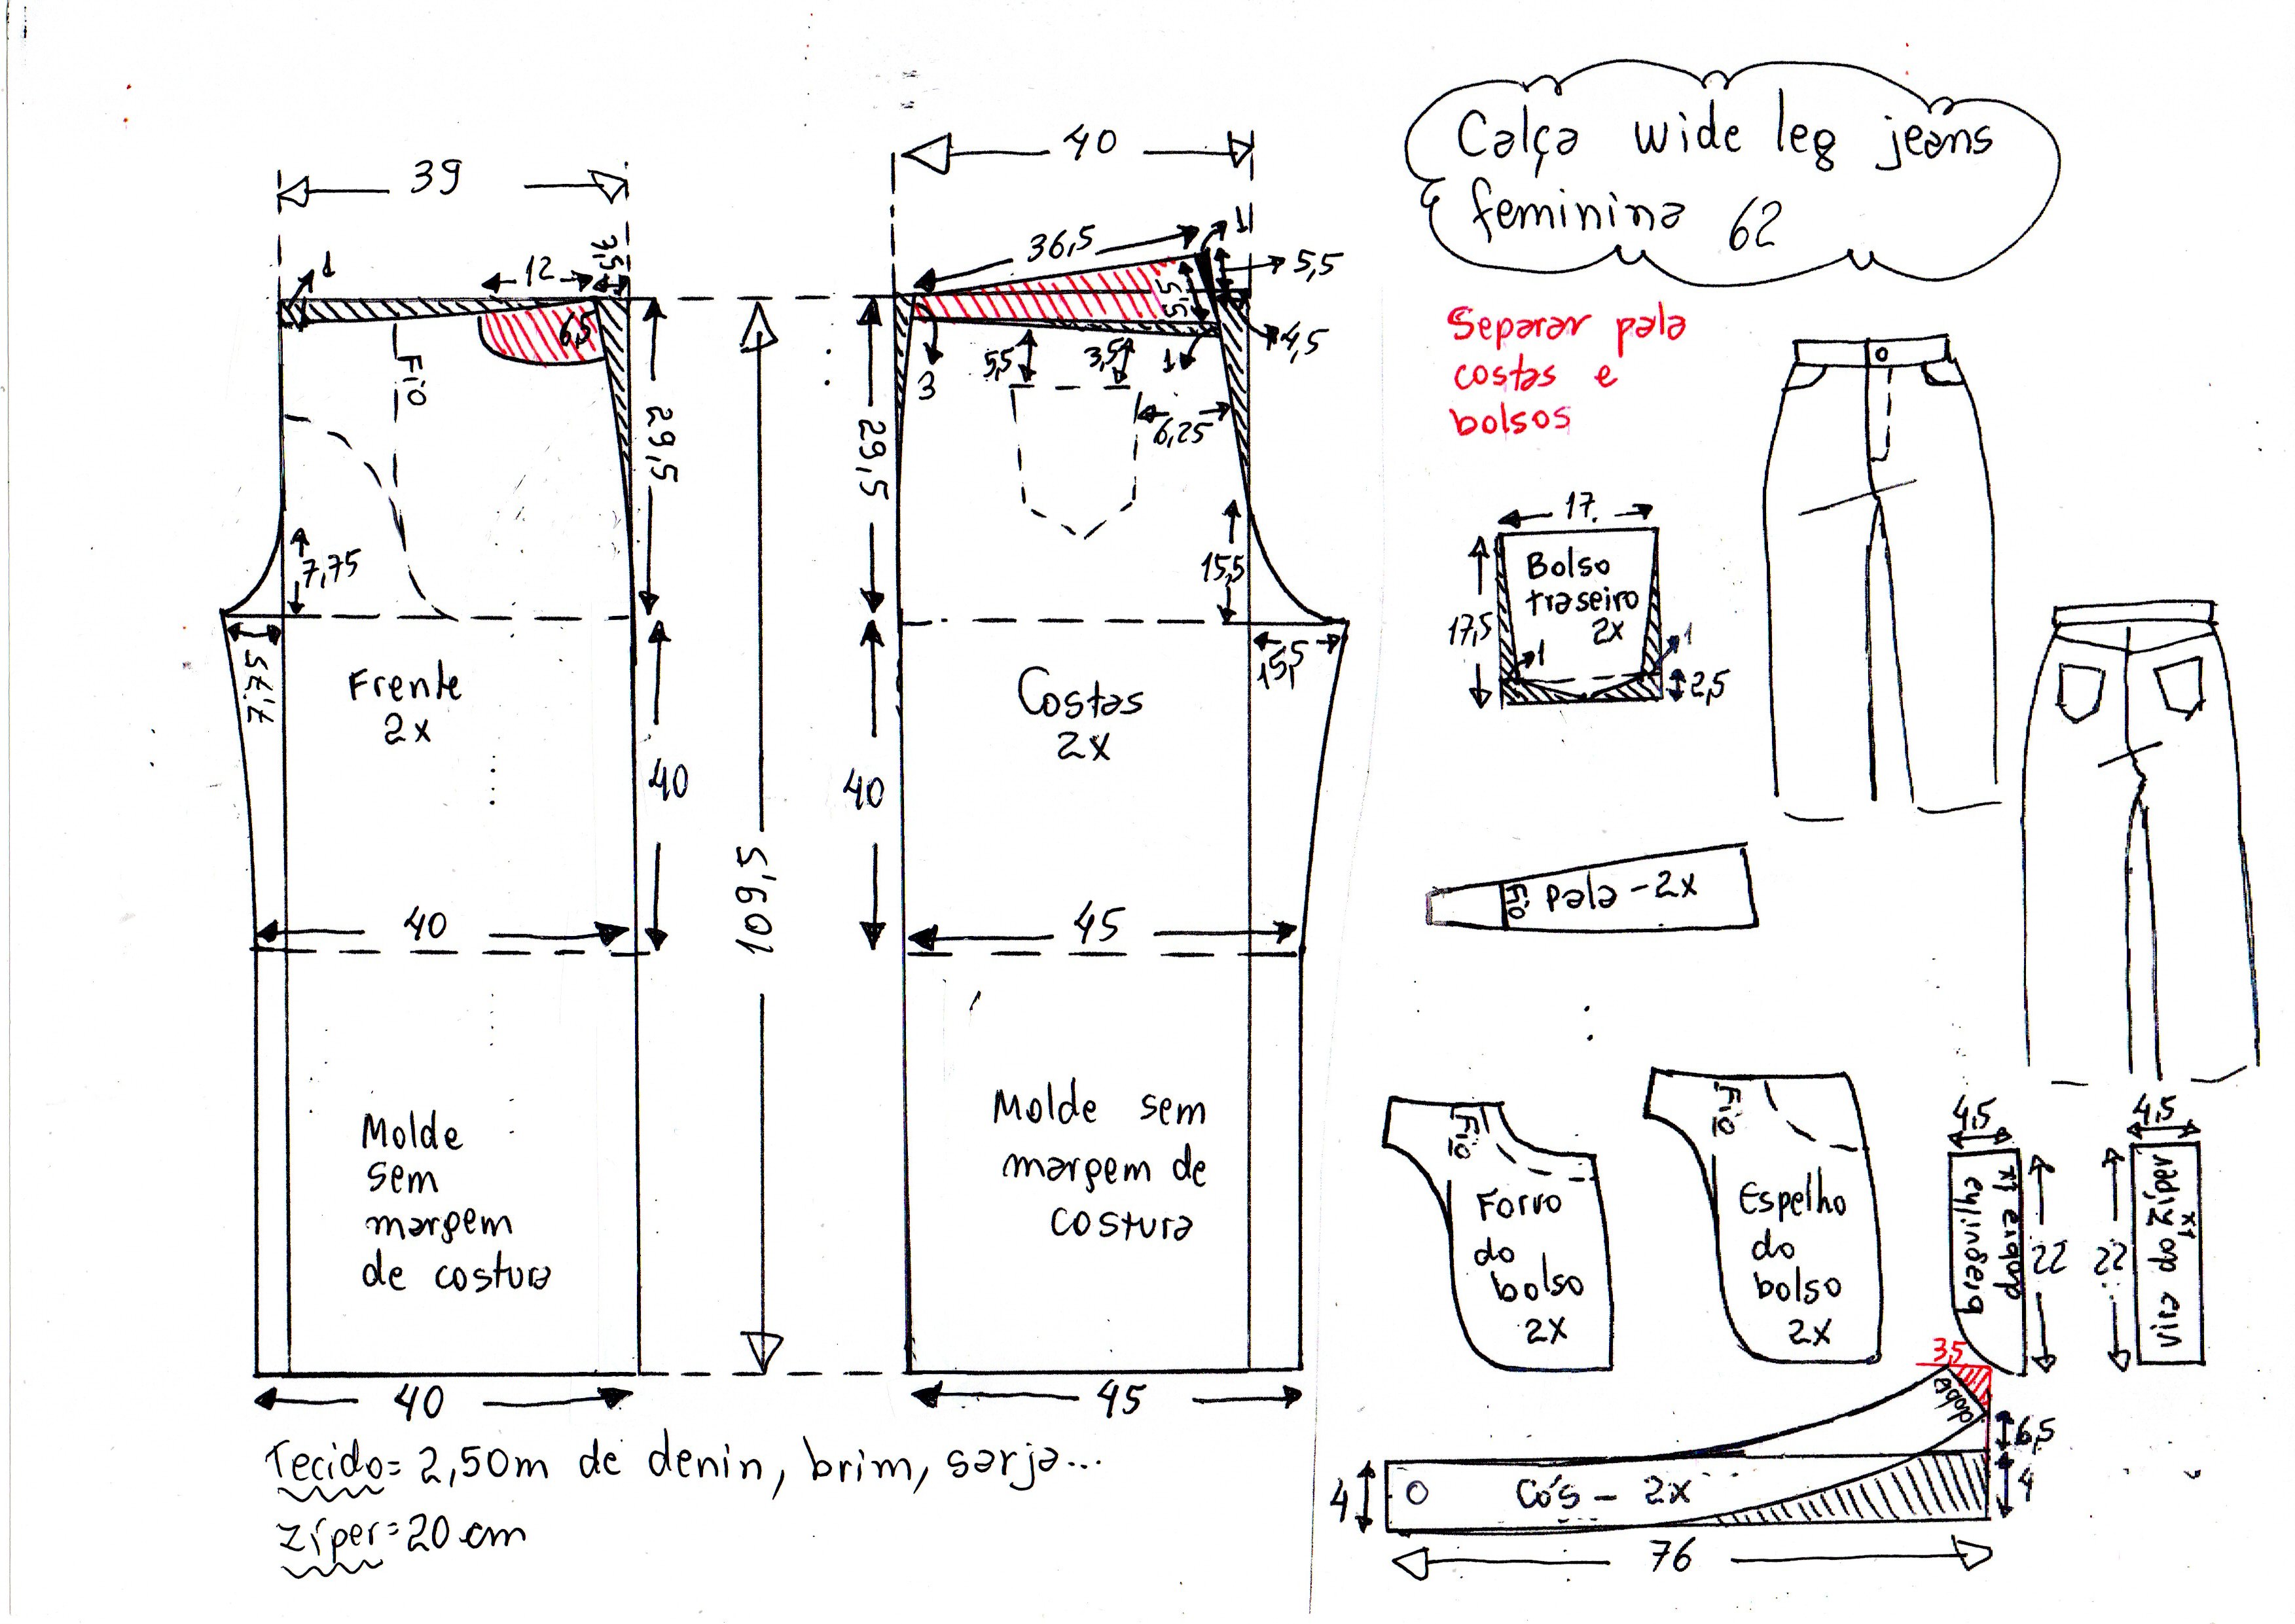 Calça wide leg jeans
feminina 62
39
40
1
12
3,5
6,5
Fio
29,5
7,75
7,75
Frente
2x
40
40
Molde
sem
margem
de costura
40
109,5
36,5
1
5,5
5,5
4,5
3
5,5
3,5
1
6,25
29,5
15,5
15,5
Costas
2x
40
45
Molde sem
margem de
costura
45
Separar pala
costas e
bolsos
17
Bolso
traseiro
2x
17,5
1
1
2,5
Fio
Pala - 2x
Fio
Forro
do
bolso
2x
Fio
Espelho
do
bolso
2x
4,5
braguilha
dobra x1
22
4,5
vira do zíper
x1
22
3,5
dobra
6,5
4
4
Cós - 2x
76
Tecido = 2,50m de denin, brim, sarja...
Zíper = 20 cm